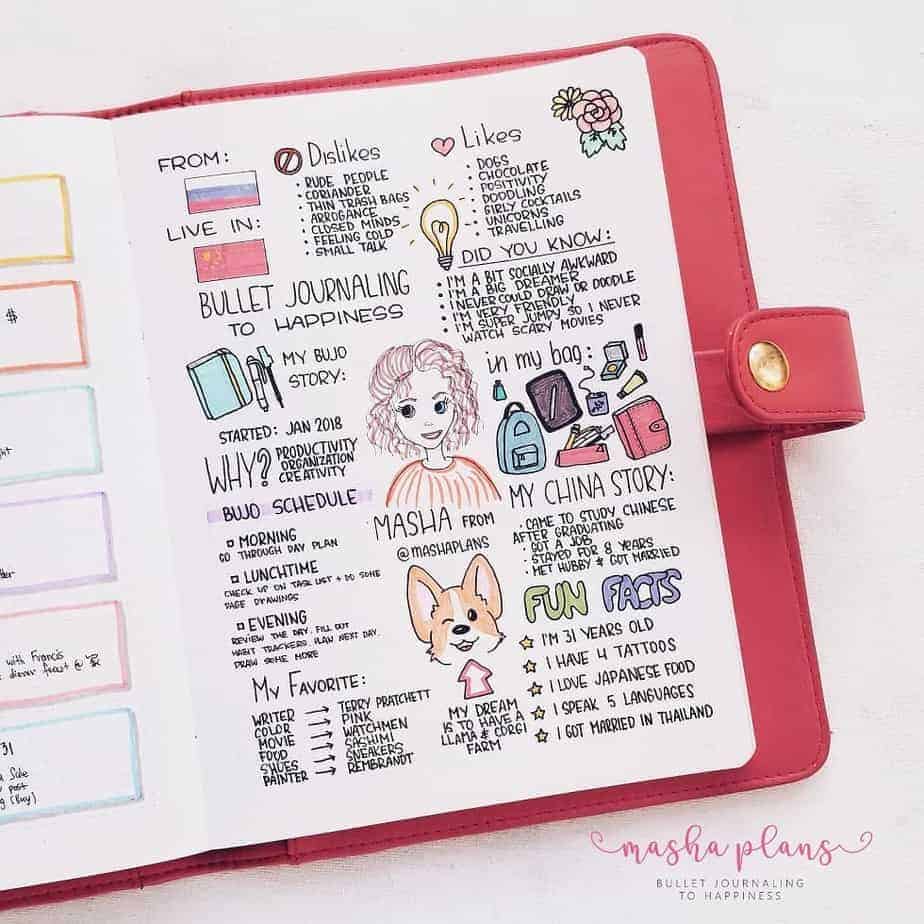 $
ght
tter
with Francis
dinner feast @
31
a Sale
post
(Buy)
FROM:
LIVE IN:
Dislikes
• RUDE PEOPLE
• CORIANDER
• THIN TRASH BAGS
• ARROGANCE
• CLOSED MINDS
• FEELING COLD
• SMALL TALK
Likes
• DOGS
• CHOCOLATE
• POSITIVITY
• DOODLING
• GIRLY COCKTAILS
• UNICORNS
• TRAVELLING
DID YOU KNOW:
• I'M A BIT SOCIALLY AWKWARD
• I'M A BIG DREAMER
• I NEVER COULD DRAW OR DOODLE
• I'M VERY FRIENDLY
• I'M SUPER JUMPY SO I NEVER
WATCH SCARY MOVIES
BULLET JOURNALING
TO HAPPINESS
MY BUJO
STORY:
STARTED: JAN 2018
WHY?
PRODUCTIVITY
ORGANIZATION
CREATIVITY
in my bag:
BUJO SCHEDULE
MORNING
GO THROUGH DAY PLAN
LUNCHTIME
CHECK UP ON TASK LIST + DO SOME
PAGE DRAWINGS
EVENING
REVIEW THE DAY. FILL OUT
HABIT TRACKERS. PLAN NEXT DAY.
DRAW SOME MORE
MASHA FROM
@MASHAPLANS
MY CHINA STORY:
• CAME TO STUDY CHINESE
AFTER GRADUATING
• GOT A JOB
• STAYED FOR 8 YEARS
• MET HUBBY & GOT MARRIED
FUN FACTS
I'M 31 YEARS OLD
I HAVE 4 TATTOOS
I LOVE JAPANESE FOOD
I SPEAK 5 LANGUAGES
I GOT MARRIED IN THAILAND
MY FAVORITE:
WRITER → TERRY PRATCHETT
COLOR → PINK
MOVIE → WATCHMEN
FOOD → SASHIMI
SHOES → SNEAKERS
PAINTER → REMBRANDT
MY DREAM
IS TO HAVE A
LLAMA & CORGI
FARM
masha plans
BULLET JOURNALING
TO HAPPINESS